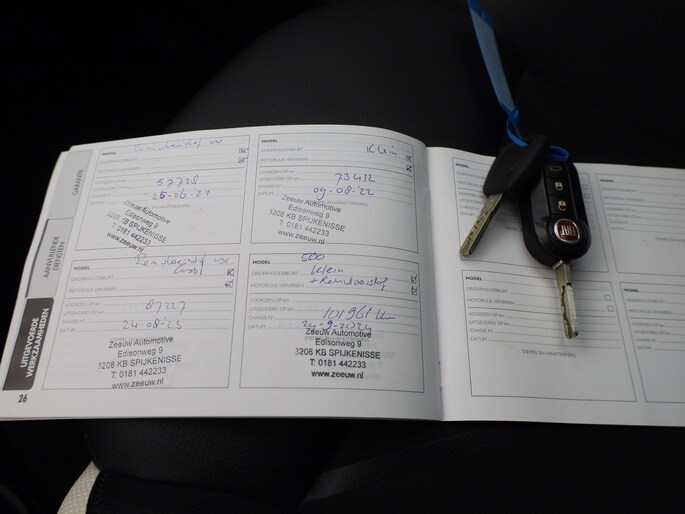 GARANTIE
AANVULLENDE
DIENSTEN
UITGEVOERDE
WERKZAAMHEDEN
26
MODEL
ONDERHOUDSBEURT
MOTOROLIE VERVERSEN
57728
25-06-21
Zeeuw Automotive
Edisonweg 9
3208 KB SPIJKENISSE
T: 0181 442233
www.zeeuw.nl
MODEL
Klein
ONDERHOUDSBEURT
MOTOROLIE VERVERSEN
73412
09-08-22
Zeeuw Automotive
Edisonweg 9
3208 KB SPIJKENISSE
T: 0181 442233
www.zeeuw.nl
MODEL
Remvloeistof
Groot
ONDERHOUDSBEURT
MOTOROLIE VERVERSEN
87227
24-08-23
DATUM
Zeeuw Automotive
Edisonweg 9
3208 KB SPIJKENISSE
T: 0181 442233
www.zeeuw.nl
MODEL
500
Klein
ONDERHOUDSBEURT
+ Remvloeistof
MOTOROLIE VERVERSEN
101961 km
24-9-2024
DATUM
Zeeuw Automotive
Edisonweg 9
3208 KB SPIJKENISSE
T: 0181 442233
www.zeeuw.nl
MODEL
MODEL
MODEL
ONDERHOUDSBEURT
MOTOROLIE VERVERSEN
DATUM
MODEL
FIAT